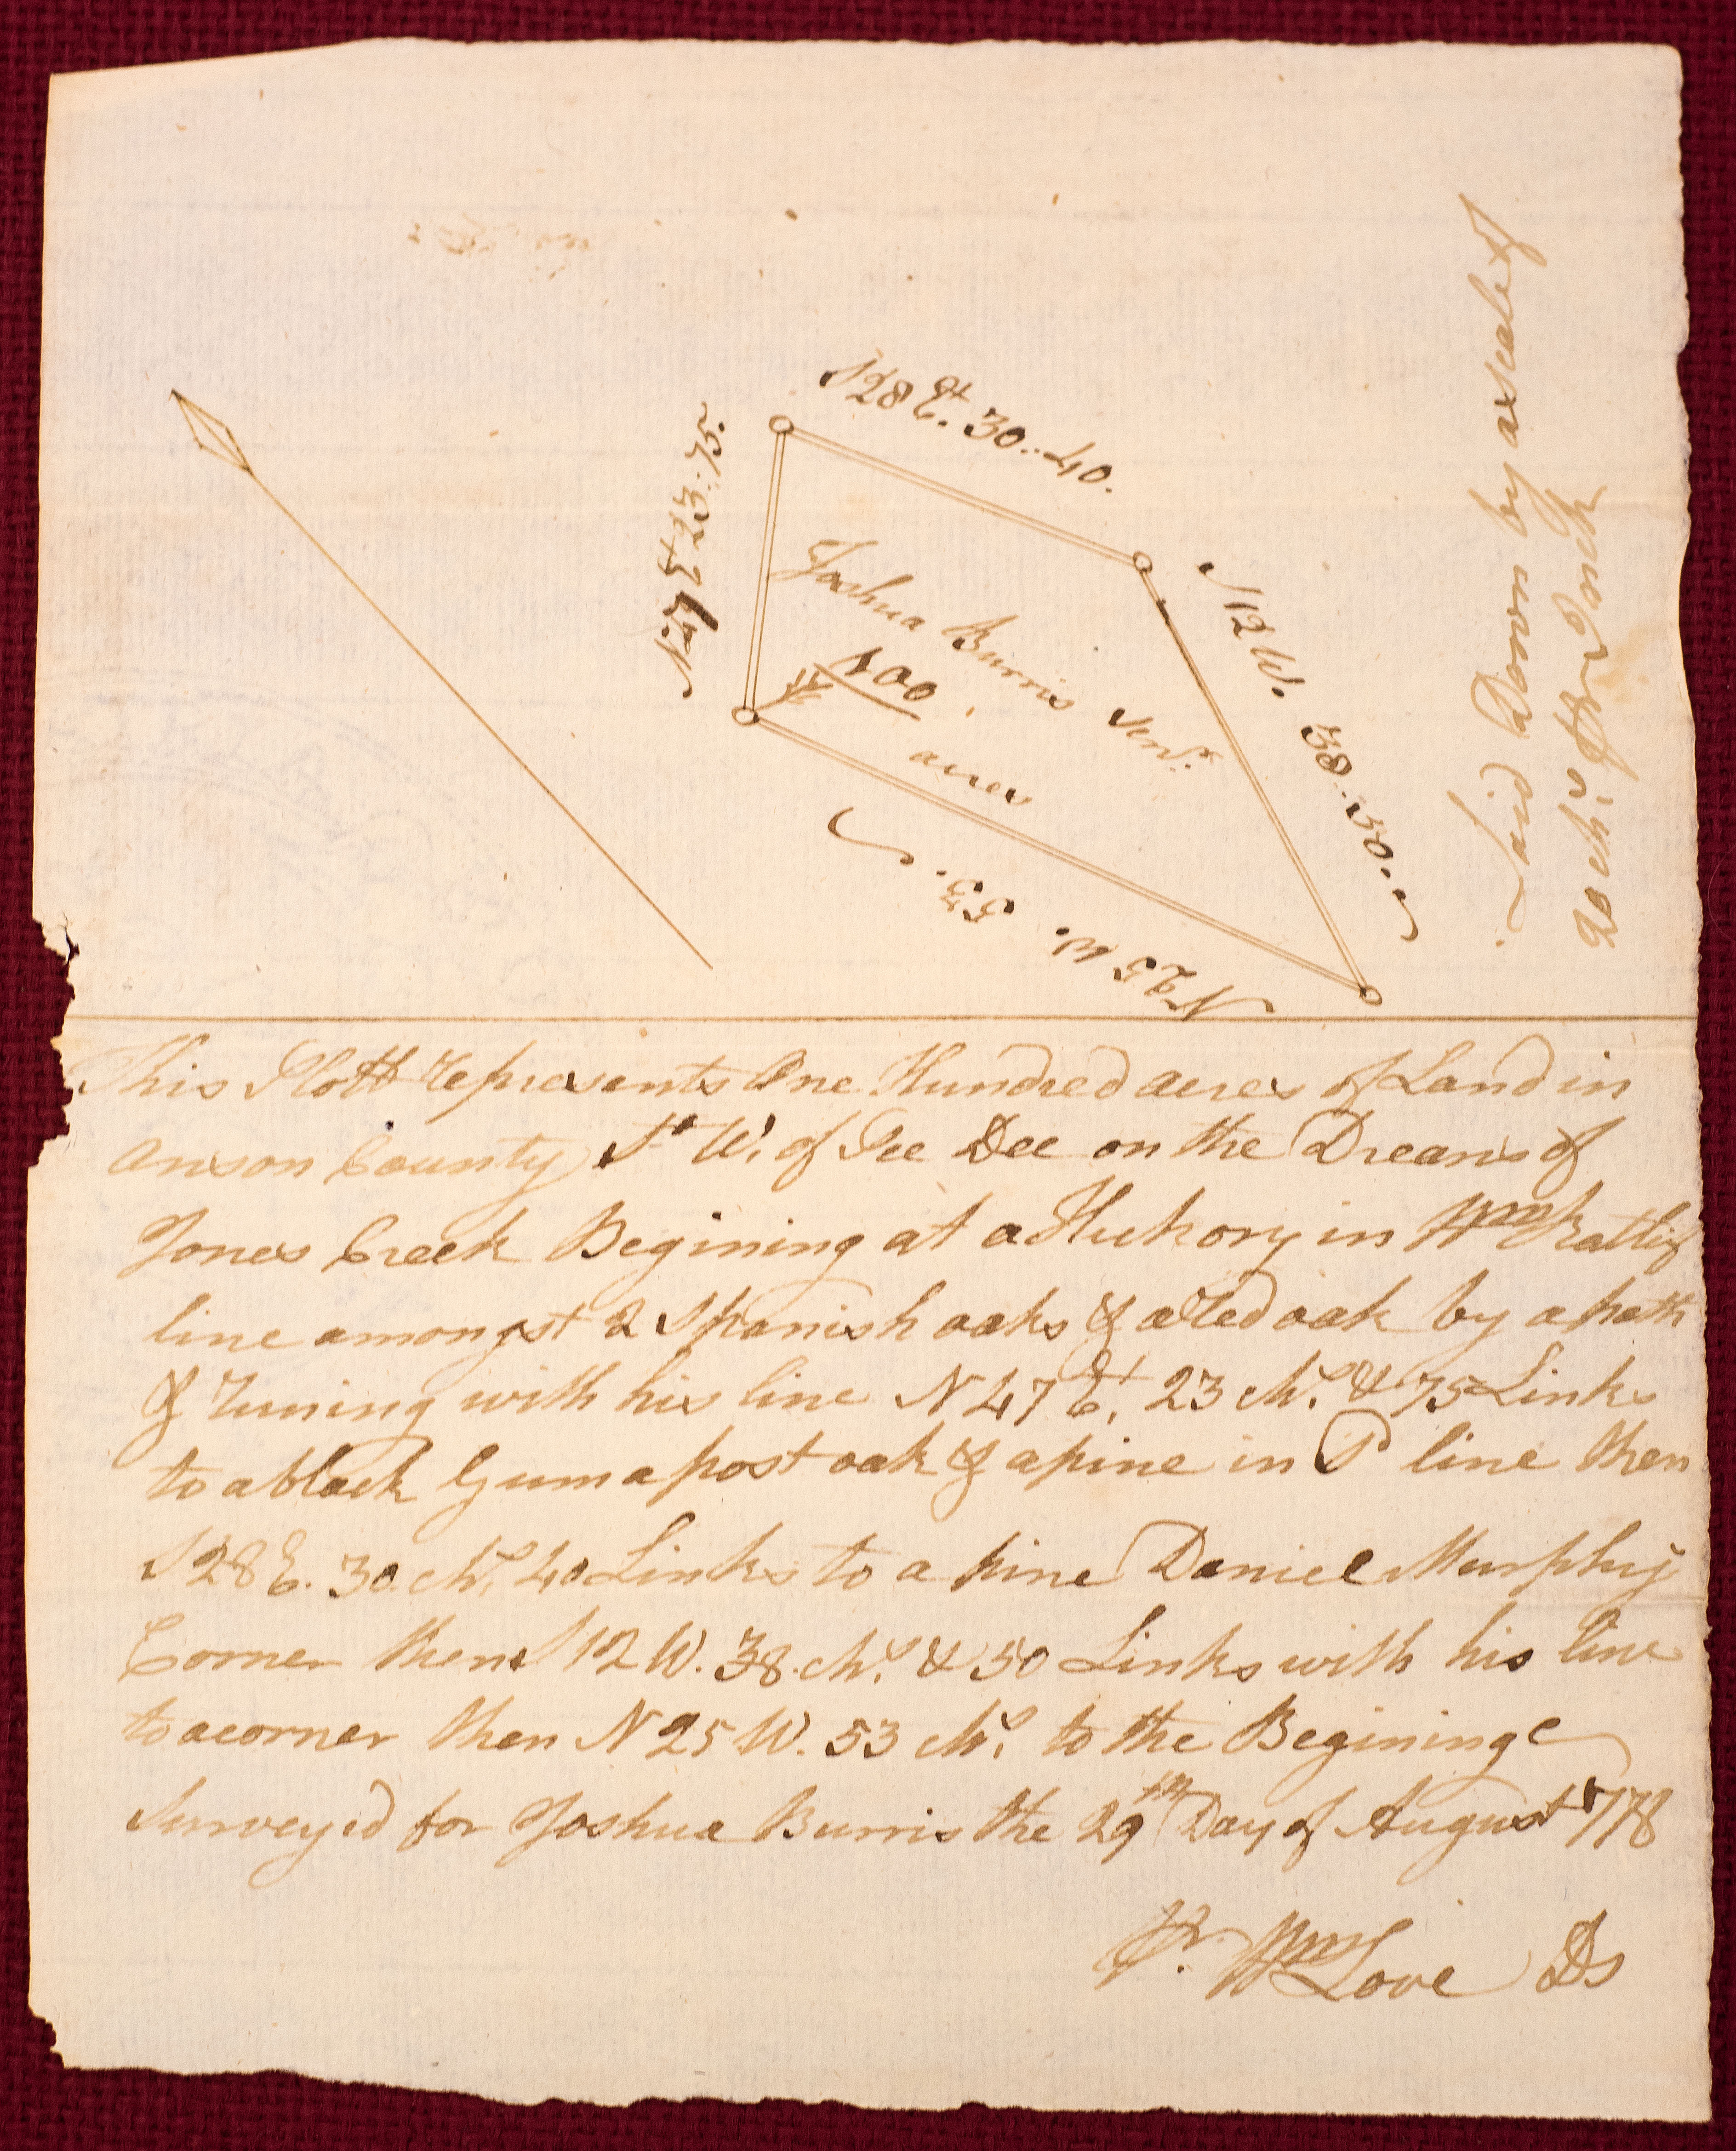 S 28 Et. 30..40.
N 47 Et 23..75.
Joshua Burris Senr.
100
acres
S 12 W. 38..50..
N 25 W. 53.
Laid Down by a scale of
20 chs. pr Inch
This Plott represents One Hundred acres of Land in
Anson County So W. of Pee Dee on the Dreans of
Jones Creek Begining at a Hickory in Wm Ratlif
line amongst 2 Spanish oaks & a Red oak by a path
& runing with his line N 47 Et. 23 chs. & 75 Links
to a black Gum a post oak & a pine in Sd line then
S 28 E. 30 chs. 40 Links to a pine Daniel Murphy
Corner then S 12 W. 38. chs. & 50 Links with his line
to a corner then N 25 W. 53 chs. to the Begininge
Surveyed for Joshua Burris the 29th Day of August 1778
Pr. Wm Love DS